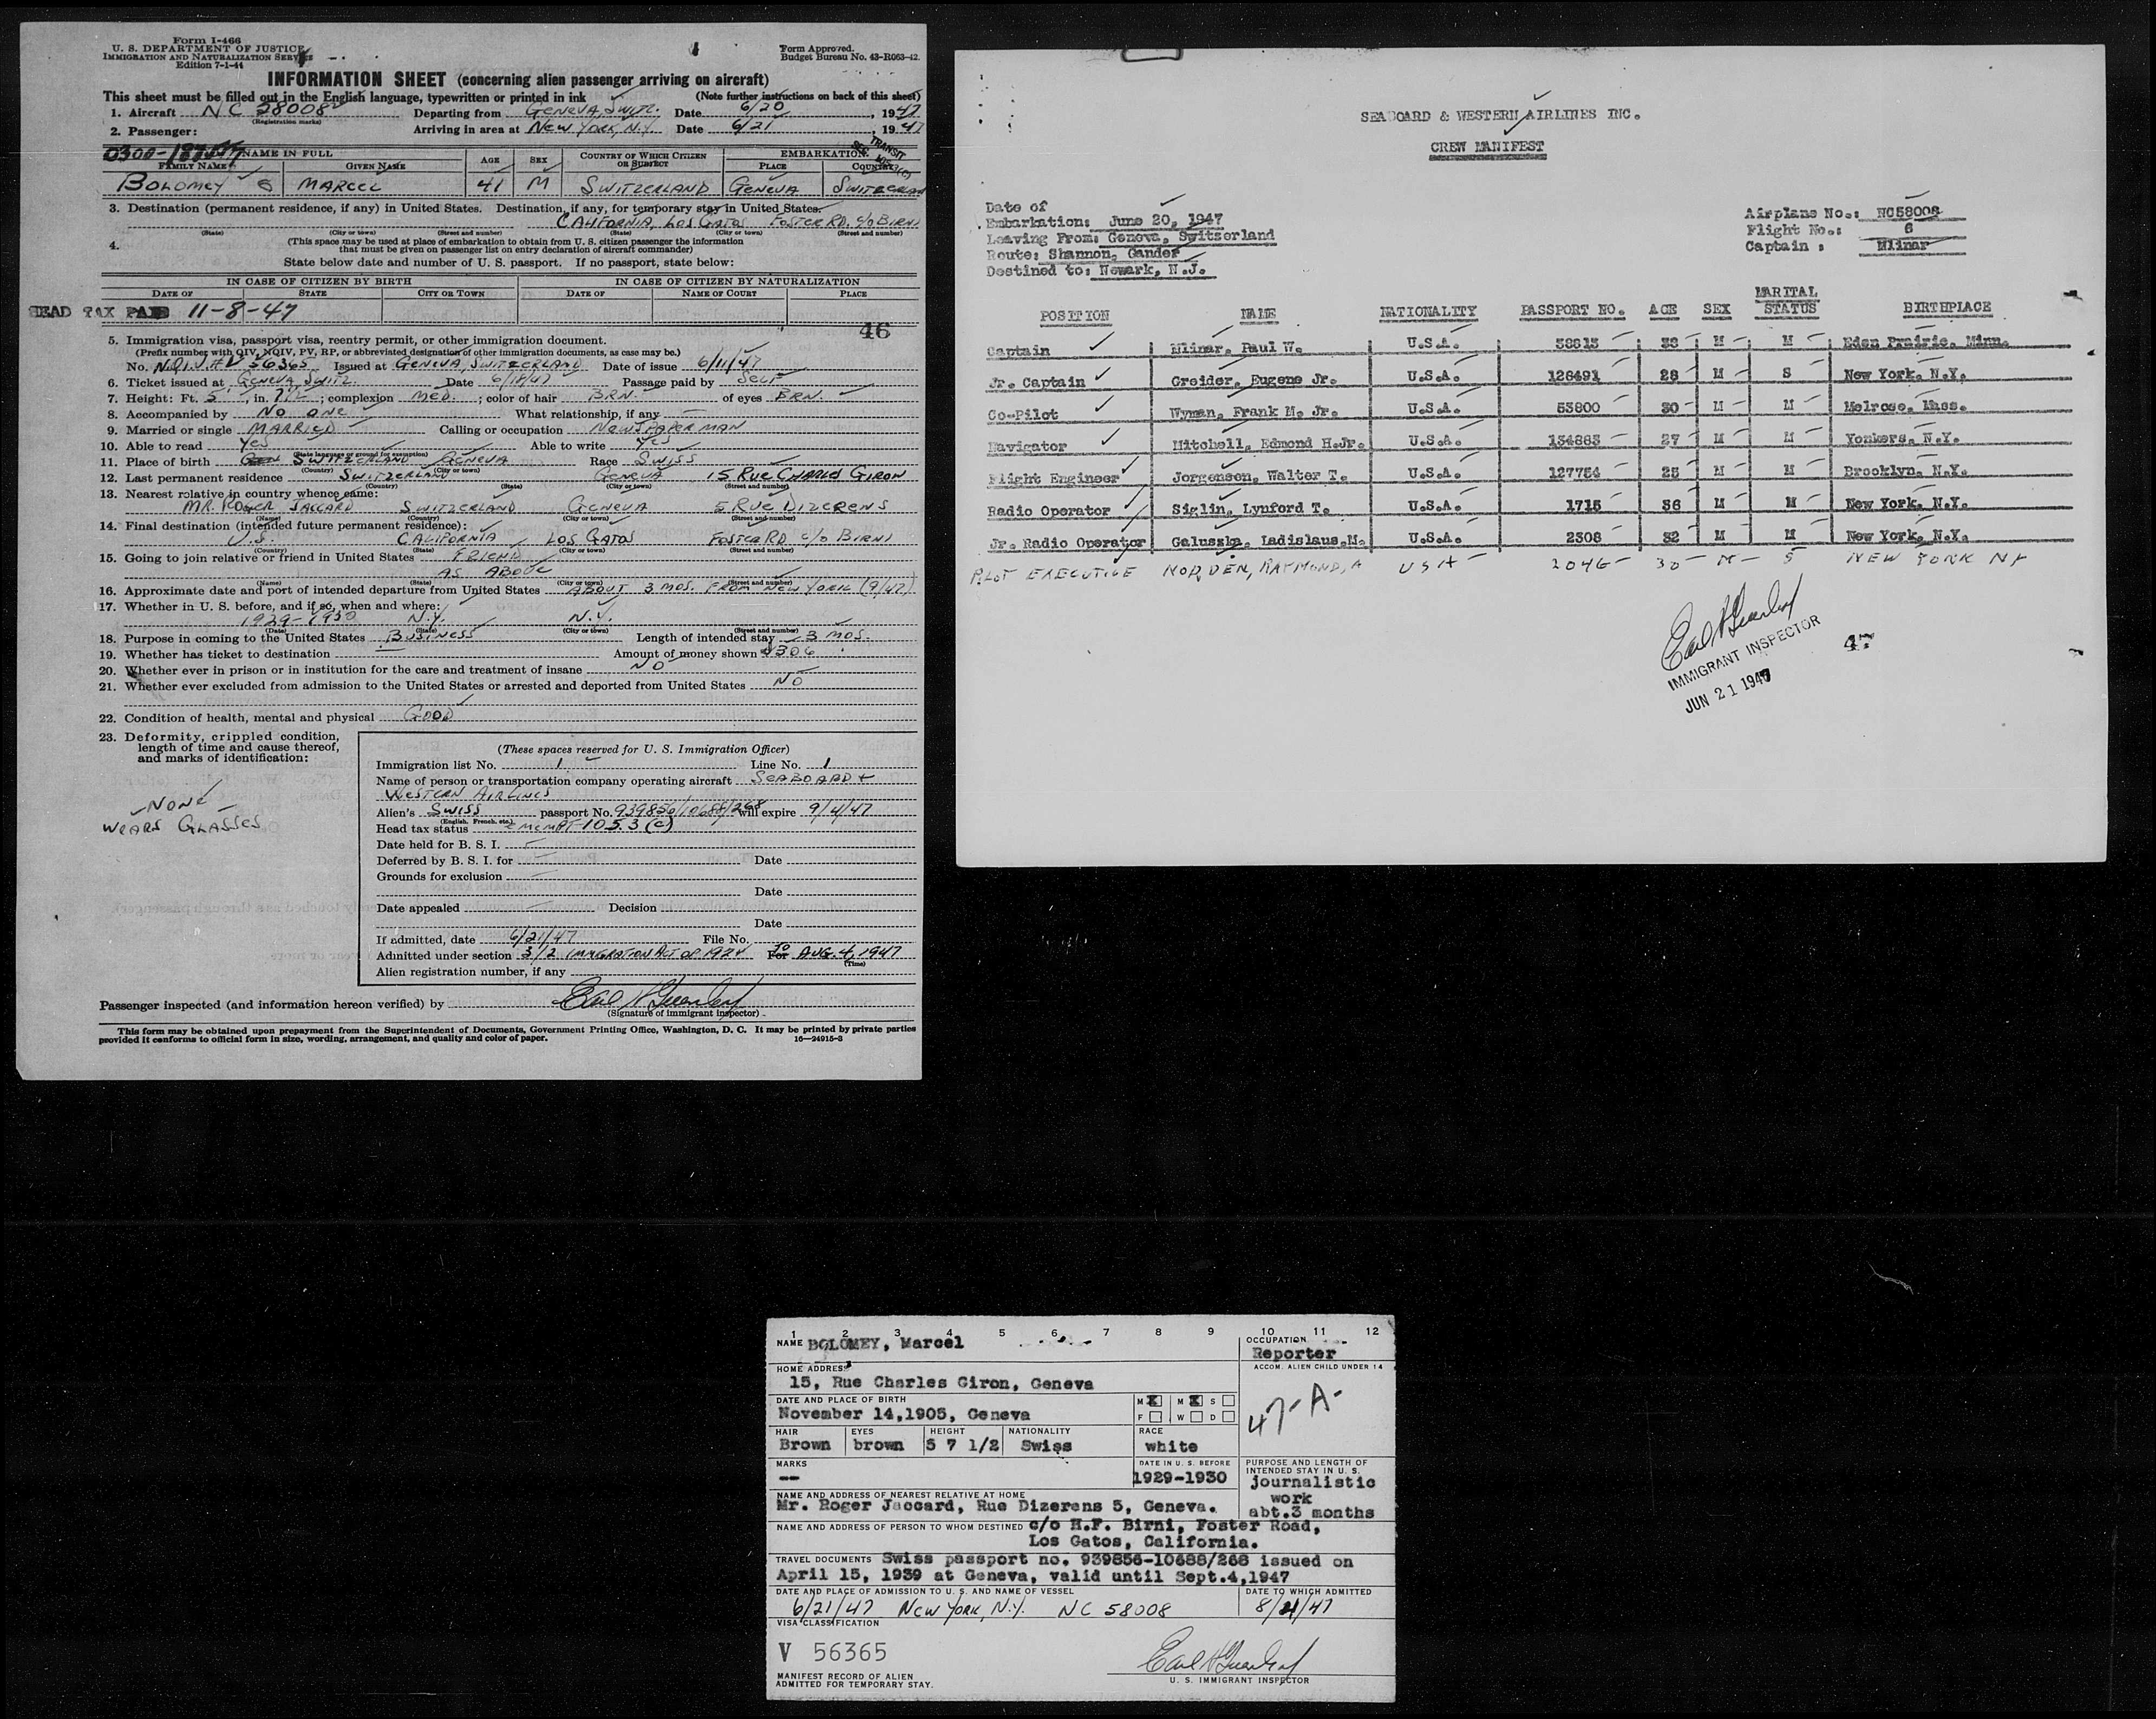 Form I-466
U. S. DEPARTMENT OF JUSTICE
IMMIGRATION AND NATURALIZATION SERVICE
Edition 7-1-44
Form Approved.
Budget Bureau No. 43-R063-42.
INFORMATION SHEET (concerning alien passenger arriving on aircraft)
This sheet must be filled out in the English language, typewritten or printed in ink (Note further instructions on back of this sheet)
1. Aircraft NC 58008 Departing from GENEVA, SWITZ. Date 6/20, 1947
(Registration marks)
2. Passenger: Arriving in area at NEW YORK, N.Y. Date 6/21, 1947
0300- NAME IN FULL AGE SEX COUNTRY OF WHICH CITIZEN OR SUBJECT EMBARKATION TRANSIT
FAMILY NAME GIVEN NAME PLACE COUNTRY
BOLOMEY MARCEL 41 M SWITZERLAND GENEVA SWITZERLAND
3. Destination (permanent residence, if any) in United States. Destination, if any, for temporary stay in United States.
CALIFORNIA, LOS GATOS FOSTER RD. C/O BIRNI
(State) (City or town) (Street and number) (State) (City or town) (Street and number)
4. (This space may be used at place of embarkation to obtain from U. S. citizen passenger the information
that must be given on passenger list on entry declaration of aircraft commander)
State below date and number of U. S. passport. If no passport, state below:
IN CASE OF CITIZEN BY BIRTH IN CASE OF CITIZEN BY NATURALIZATION
DATE OF STATE CITY OR TOWN DATE OF NAME OF COURT PLACE
HEAD TAX PAID 11-8-47
46
5. Immigration visa, passport visa, reentry permit, or other immigration document.
(Prefix number with QIV, NQIV, PV, RP, or abbreviated designation of other immigration documents, as case may be.)
No. N.Q.I.V.# V 56365 Issued at GENEVA, SWITZERLAND Date of issue 6/11/47
6. Ticket issued at GENEVA, SWITZ. Date 6/18/47 Passage paid by SELF
7. Height: Ft. 5, in. 7 1/2; complexion MED.; color of hair BRN. of eyes BRN.
8. Accompanied by NO ONE What relationship, if any —
9. Married or single MARRIED Calling or occupation NEWSPAPERMAN
10. Able to read YES Able to write YES
(State language or ground for exemption)
11. Place of birth SWITZERLAND GENEVA Race SWISS
(Country) (City or town)
12. Last permanent residence SWITZERLAND GENEVA 15 RUE CHARLES GIRON
(Country) (State) (City or town) (Street and number)
13. Nearest relative in country whence came:
MR. ROGER JACCARD SWITZERLAND GENEVA 5 RUE DIZERENS
(Name) (Country) (City or town) (Street and number)
14. Final destination (intended future permanent residence):
U.S. CALIFORNIA LOS GATOS FOSTER RD C/O BIRNI
(Country) (State) (City or town) (Street and number)
15. Going to join relative or friend in United States FRIEND
AS ABOVE
(Name) (State) (City or town) (Street and number)
16. Approximate date and port of intended departure from United States ABOUT 3 MOS. FROM NEW YORK (9/47)
17. Whether in U. S. before, and if so, when and where:
1929-1930 N.Y. N.Y.
(Date) (State) (City or town) (Street and number)
18. Purpose in coming to the United States BUSINESS Length of intended stay 3 MOS.
19. Whether has ticket to destination — Amount of money shown $306
20. Whether ever in prison or in institution for the care and treatment of insane NO
21. Whether ever excluded from admission to the United States or arrested and deported from United States NO
22. Condition of health, mental and physical GOOD
23. Deformity, crippled condition,
length of time and cause thereof,
and marks of identification:
—NONE—
WEARS GLASSES
(These spaces reserved for U. S. Immigration Officer)
Immigration list No. 1 Line No. 1
Name of person or transportation company operating aircraft SEABOARD +
WESTERN AIRLINES
Alien's SWISS passport No. 939856/10688/268 will expire 9/4/47
(English, French, etc.)
Head tax status EXEMPT-105.3 (c)
Date held for B. S. I. —
Deferred by B. S. I. for — Date
Grounds for exclusion —
Date
Date appealed — Decision
Date
If admitted, date 6/21/47 File No.
Admitted under section 3/2 IMMIGRATION ACT OF 1924 For TO AUG. 4, 1947
(Time)
Alien registration number, if any
Passenger inspected (and information hereon verified) by
(Signature of immigrant inspector)
This form may be obtained upon prepayment from the Superintendent of Documents, Government Printing Office, Washington, D. C. It may be printed by private parties
provided it conforms to official form in size, wording, arrangement, and quality and color of paper. 16—24915-3
SEABOARD & WESTERN AIRLINES INC.
CREW MANIFEST
Date of
Embarkation: June 20, 1947
Leaving From: Geneva, Switzerland
Route: Shannon, Gander
Destined to: Newark, N.J.
Airplane No.: NC58008
Flight No.: 6
Captain : Mlinar
POSITION NAME NATIONALITY PASSPORT NO. AGE SEX MARITAL STATUS BIRTHPLACE
Captain Mlinar, Paul W. U.S.A. 58813 38 M M Eden Prairie, Minn.
Jr. Captain Greider, Eugene Jr. U.S.A. 126491 28 M S New York, N.Y.
Co-Pilot Wyman, Frank M. Jr. U.S.A. 53800 30 M M Melrose, Mass.
Navigator Mitchell, Edmond H.Jr. U.S.A. 134863 27 M M Yonkers, N.Y.
Flight Engineer Jorgensen, Walter T. U.S.A. 127754 25 M M Brooklyn, N.Y.
Radio Operator Siglin, Lynford T. U.S.A. 1715 36 M M New York, N.Y.
Jr. Radio Operator Galuszka, Ladislaus.M. U.S.A. 2308 32 M M New York, N.Y.
PILOT EXECUTIVE NORDEN, RAYMOND, A USA 2046 30 M S NEW YORK NY
IMMIGRANT INSPECTOR
JUN 21 1947
47
1 2 3 4 5 6 7 8 9 10 11 12
NAME BOLOMEY, Marcel
OCCUPATION
Reporter
HOME ADDRESS
15, Rue Charles Giron, Geneva
ACCOM. ALIEN CHILD UNDER 14
47-A-
DATE AND PLACE OF BIRTH
November 14,1905, Geneva
M X M X S
F W D
HAIR EYES HEIGHT NATIONALITY RACE
Brown brown 5 7 1/2 Swiss white
MARKS
--
DATE IN U. S. BEFORE
1929-1930
PURPOSE AND LENGTH OF
INTENDED STAY IN U. S.
journalistic
work
abt.3 months
NAME AND ADDRESS OF NEAREST RELATIVE AT HOME
Mr. Roger Jaccard, Rue Dizerens 5, Geneva.
NAME AND ADDRESS OF PERSON TO WHOM DESTINED c/o H.F. Birni, Foster Road,
Los Gatos, California.
TRAVEL DOCUMENTS Swiss passport no. 939856-10688/268 issued on
April 15, 1939 at Geneva, valid until Sept.4,1947
DATE AND PLACE OF ADMISSION TO U. S. AND NAME OF VESSEL
6/21/47 NEW YORK, N.Y. NC 58008
DATE TO WHICH ADMITTED
8/4/47
VISA CLASSIFICATION
V 56365
MANIFEST RECORD OF ALIEN
ADMITTED FOR TEMPORARY STAY.
U. S. IMMIGRANT INSPECTOR